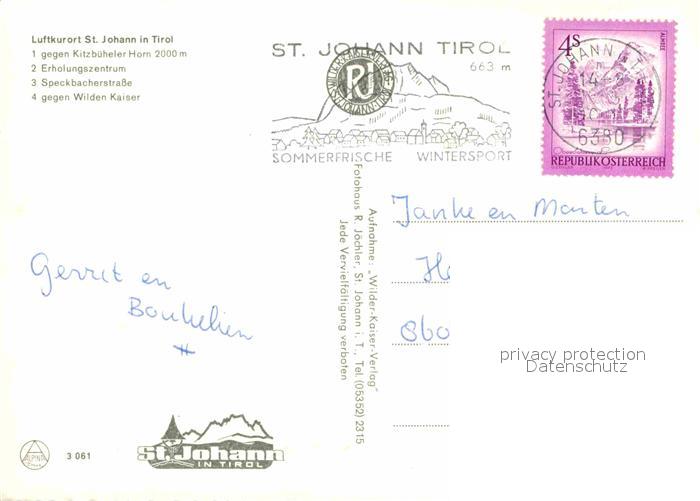 Luftkurort St. Johann in Tirol
1 gegen Kitzbüheler Horn 2000 m
2 Erholungszentrum
3 Speckbacherstraße
4 gegen Wilden Kaiser
ST. JOHANN TIROL
663 m
SOMMERFRISCHE WINTERSPORT
4s
ALMSEE
REPUBLIK ÖSTERREICH
ST. JOHANN
6380
Janke en Marten
Gerrit en
Aufnahme: „Wilder-Kaiser-Verlag"
Fotohaus R. Jöchler, St. Johann i. T., Tel. (05352) 2315
Jede Vervielfältigung verboten
privacy protection
Datenschutz
ALPINA
3 061
St. Johann
IN TIROL